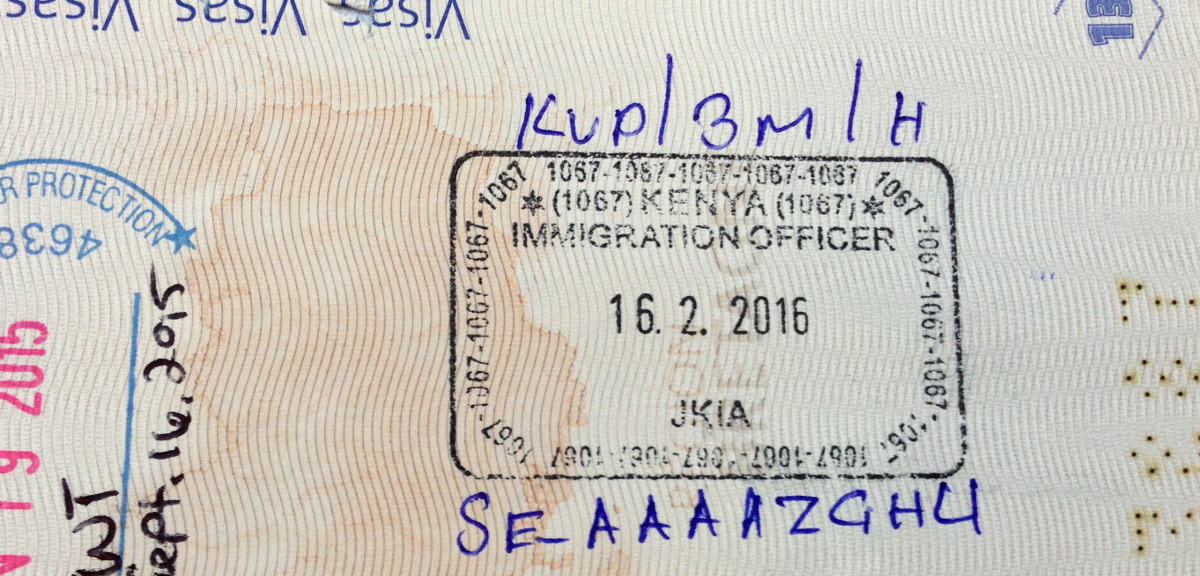 Visas Visas Visas
13
KVP/3M/H
1067-1067-1067-1067-1067-1067-1067
(1067) KENYA (1067)
IMMIGRATION OFFICER
16. 2. 2016
JKIA
1067-1067-1067-1067
1067-1067-1067
1067-1067-1067-1067-1067
SE-AAAAZGHU
R PROTECTION
4638
9 2015
Sept. 16. 2015